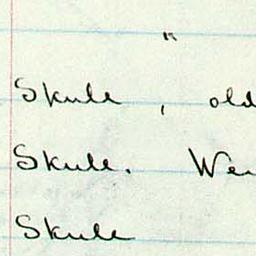 "
Skull, old
Skull. We
Skull